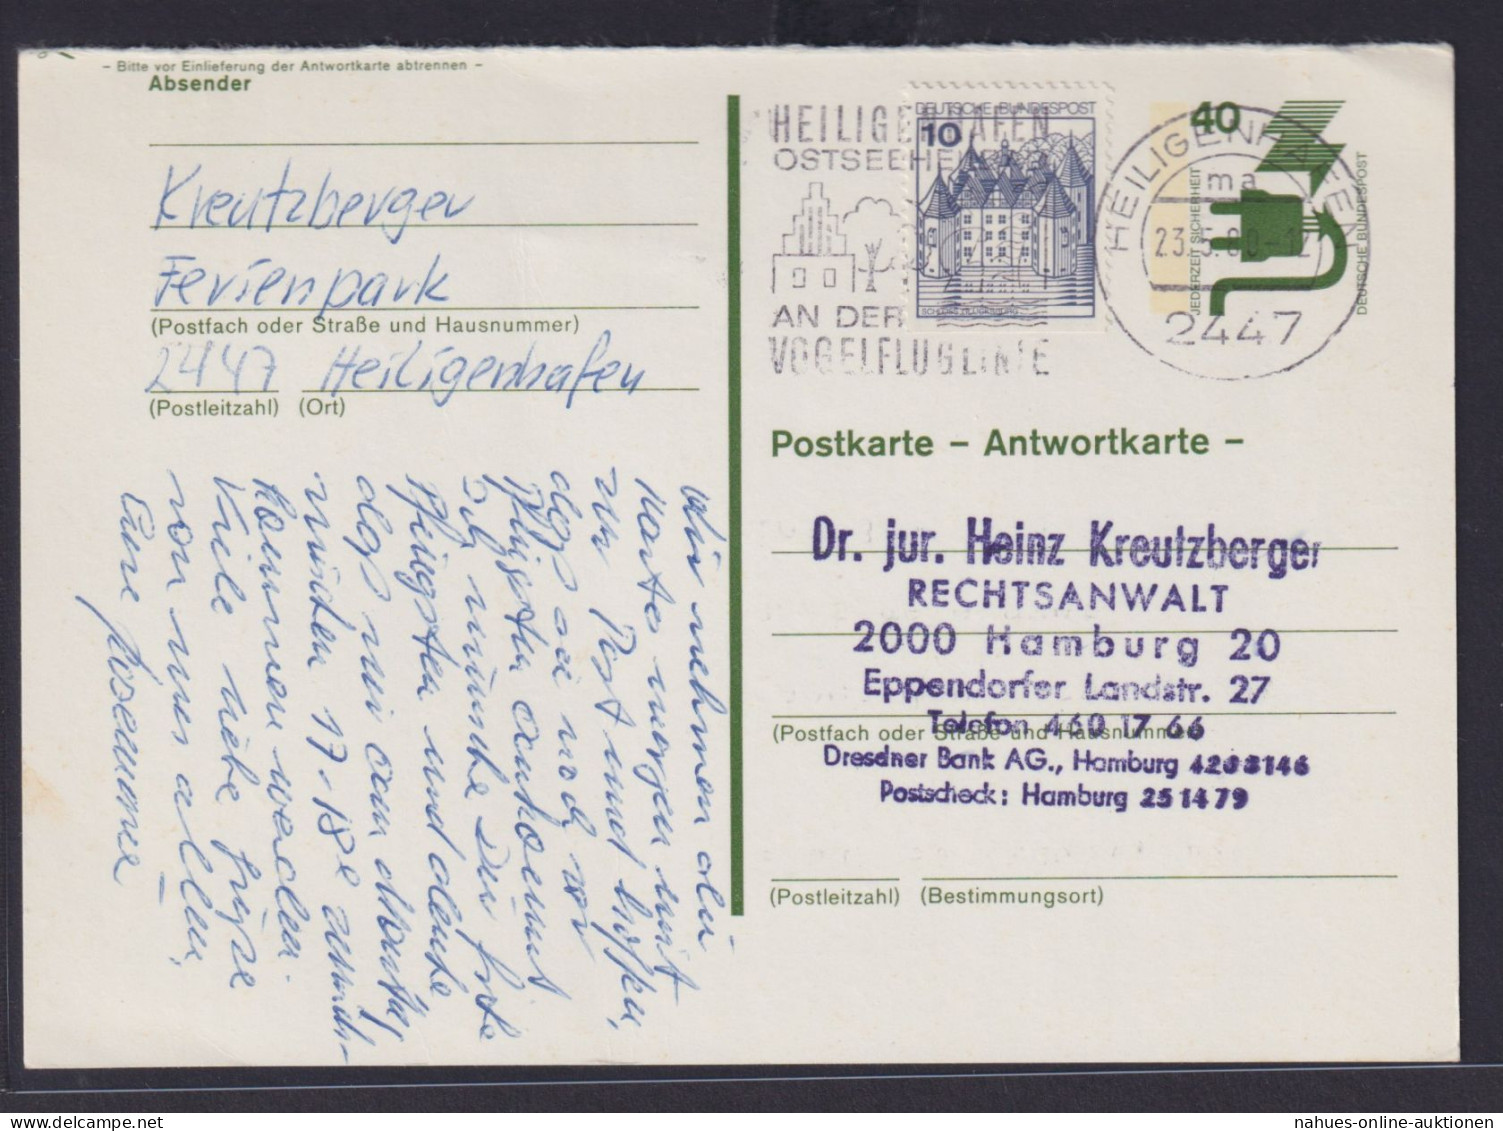 - Bitte vor Einlieferung der Antwortkarte abtrennen -
Absender
Kreutzberger
Ferienpark
(Postfach oder Straße und Hausnummer)
2447 Heiligenhafen
(Postleitzahl) (Ort)
Wir nehmen die
Karte morgen mit
zur Post und hoffen,
daß sie noch vor
Pfingsten ankommt
Pfingsten und denke
daß wir am Montag
kommen werden.
Viele liebe Grüße
von uns allen,
Eure Rosemarie
HEILIGENHAFEN
OSTSEEHEIL
AN DER
VOGELFLUGLINIE
DEUTSCHE BUNDESPOST
10
HEILIGENHAFEN
ma
23.5.80-12
2447
40
JEDERZEIT SICHERHEIT
DEUTSCHE BUNDESPOST
Postkarte – Antwortkarte –
Dr. jur. Heinz Kreutzberger
RECHTSANWALT
2000 Hamburg 20
Eppendorfer Landstr. 27
Telefon 460 17 66
(Postfach oder Straße und Hausnummer)
Dresdner Bank AG., Hamburg 4203146
Postscheck: Hamburg 251479
(Postleitzahl) (Bestimmungsort)
nahues-online-auktionen